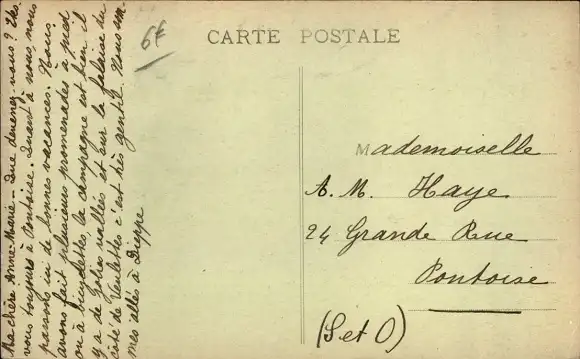 6f
CARTE POSTALE
Mademoiselle
A. M. Haye
24 Grande Rue
Pontoise
(S et O)
Ma chère Anne-Marie - Que devenez-vous ? Etes
vous toujours à Pontoise. Quant à nous, nous
passons ici de bonnes vacances. Nous
avons fait plusieurs promenades à pied
ou à bicyclettes, la campagne est bien, il
y a de jolies vallées et sur la falaise du
côté de Veulettes c'est très gentil. Nous som
mes allés à Dieppe